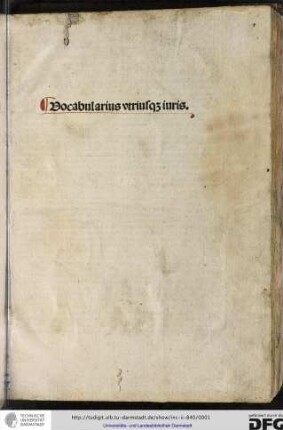 Vocabularius vtriusqꝫ iuris.
TECHNISCHE
UNIVERSITÄT
DARMSTADT
http://tudigit.ulb.tu-darmstadt.de/show/inc-ii-840/0001
Universitäts- und Landesbibliothek Darmstadt
gefördert durch die
DFG